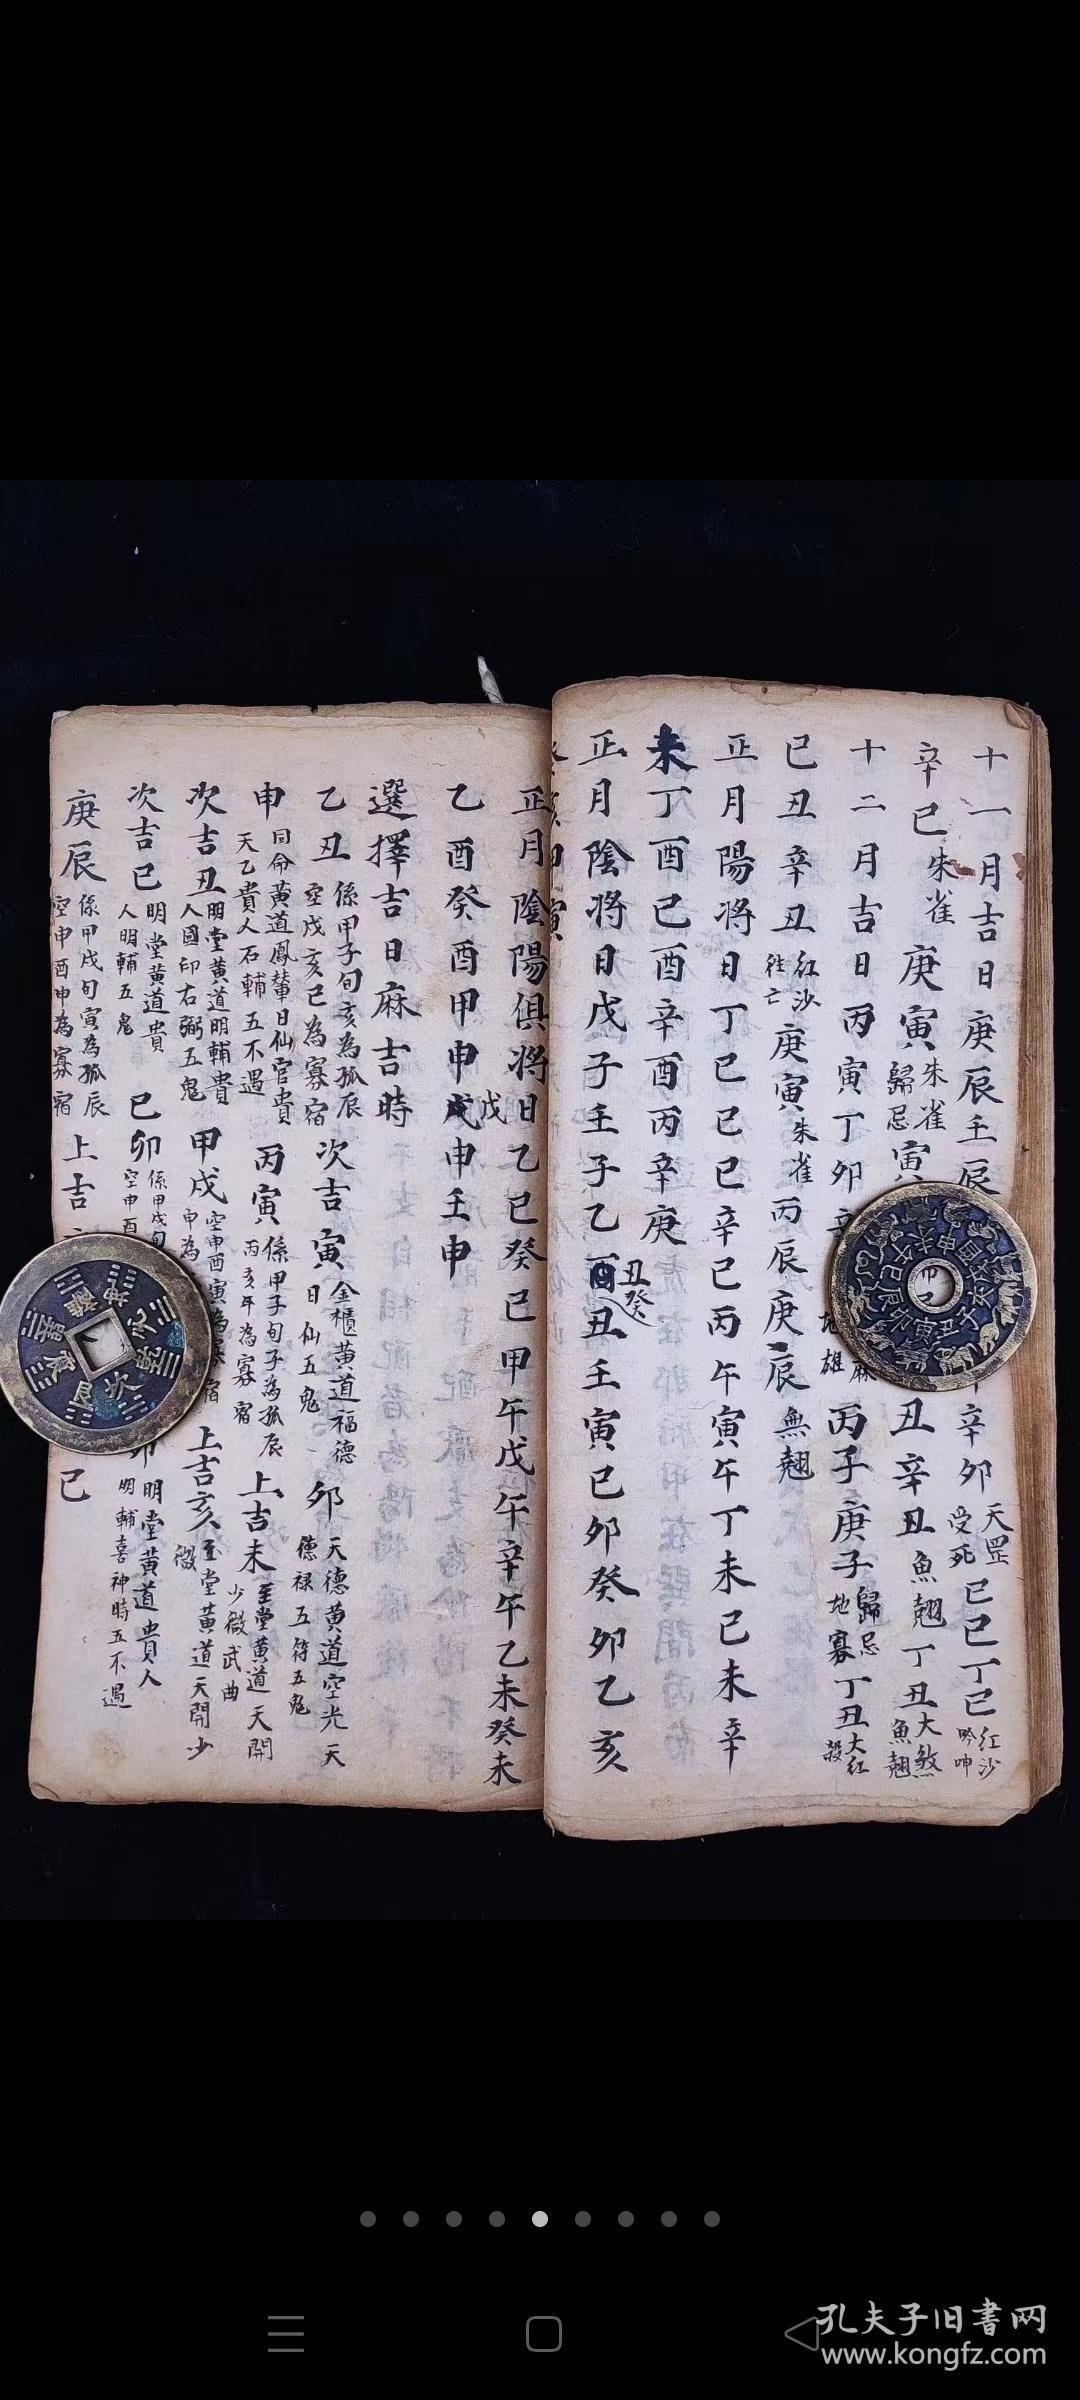 十一月吉日庚辰壬辰辛卯天罡受死己巳丁巳红沙吟呻
辛巳朱雀庚寅朱雀歸忌寅丑辛丑魚翅丁丑大煞魚翅
十二月吉日丙寅丁卯地雄丙子庚子歸忌地寡丁丑大红殺
已丑辛丑紅沙往亡庚寅朱雀丙辰庚辰無翘
正月陽将日丁巳己巳辛巳丙午寅午丁未己未辛
未丁酉己酉辛酉丙辛庚
正月陰将日戊子壬子乙丑癸丑壬寅己卯癸卯乙亥
正月陰陽俱将日乙巳癸巳甲午戊午辛午乙未癸未
乙酉癸酉甲申戊申壬申
選擇吉日麻吉時
乙丑係甲子旬亥為孤辰空戌亥已為寡宿次吉寅金櫃黄道福德日仙五鬼卯天德黄道空光天德禄五符五鬼
申司命黄道鳳輦日仙官貴天乙貴人右輔五不遇丙寅係甲子旬子為孤辰丙亥年為寡宿上吉未玉堂黄道天開少微武曲
次吉丑明堂黄道明輔貴人國印右弼五鬼甲戌空申酉寅為申為宿上吉亥玉堂黄道天開少微
次吉已明堂黄道貴人明輔五鬼已卯係甲戌旬空申酉卯明堂黄道貴人明輔喜神時五不遇
庚辰係甲戌旬寅為孤辰空申酉申為寡宿上吉已
孔夫子旧书网
www.kongfz.com